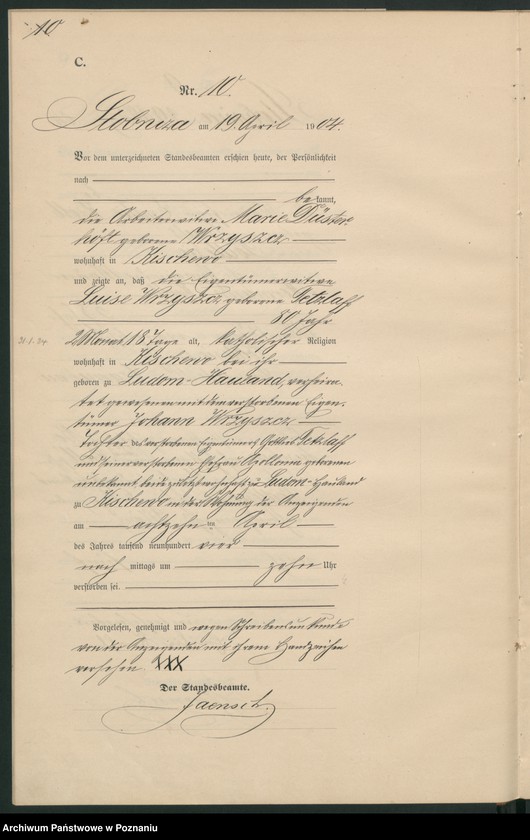 10
C.
Nr. 10.
Slobnza am 19. April 1904.
Vor dem unterzeichneten Standesbeamten erschien heute, der Persönlichkeit
nach
bekannt,
die Arbeiterwitwe Marie Düster-
höft geborene Wrzyszcz
wohnhaft in Kischewo
und zeigte an, daß die Eigentümerwitwe
Luise Wrzyszcz geborene Tetzlaff
80 Jahr
21.1.24 2 Monat 18 Tage alt, katholischer Religion
wohnhaft in Kischewo bei ihr
geboren zu Ludom-Hauland, verheira-
tet gewesen mit dem verstorbenen Eigen-
tümer Johann Wrzyszcz
Tochter des verstorbenen Eigentümers Tetzlaff
und seiner verstorbenen Ehefrau Apollonia geborenen
unbekannt, beide zuletzt wohnhaft zu Ludom-Hauland
zu Kischewo in der Wohnung der Anzeigenden
am achtzehnten April
des Jahres tausend neunhundert vier
nach mittags um zehn Uhr
verstorben sei.
Vorgelesen, genehmigt und wegen Schreibensunkunde
von der Anzeigenden mit ihrem Handzeichen
versehen. XXX
Der Standesbeamte.
Jaensch.
Archiwum Państwowe w Poznaniu